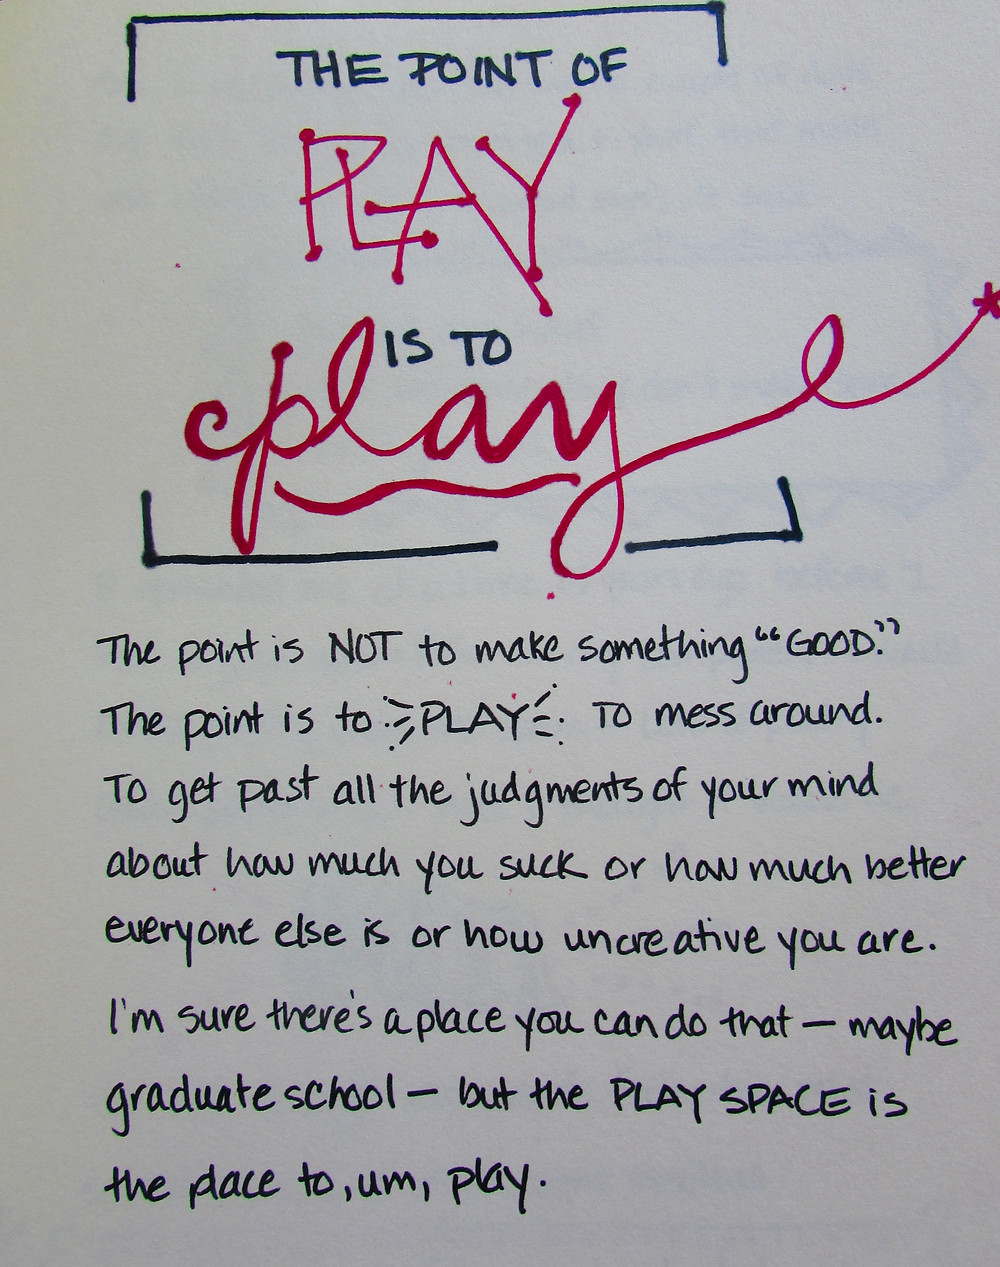 THE POINT OF
PLAY
IS TO
play
The point is NOT to make something "GOOD."
The point is to PLAY. TO mess around.
To get past all the judgments of your mind
about how much you suck or how much better
everyone else is or how uncreative you are.
I'm sure there's a place you can do that — maybe
graduate school — but the PLAY SPACE is
the place to, um, play.